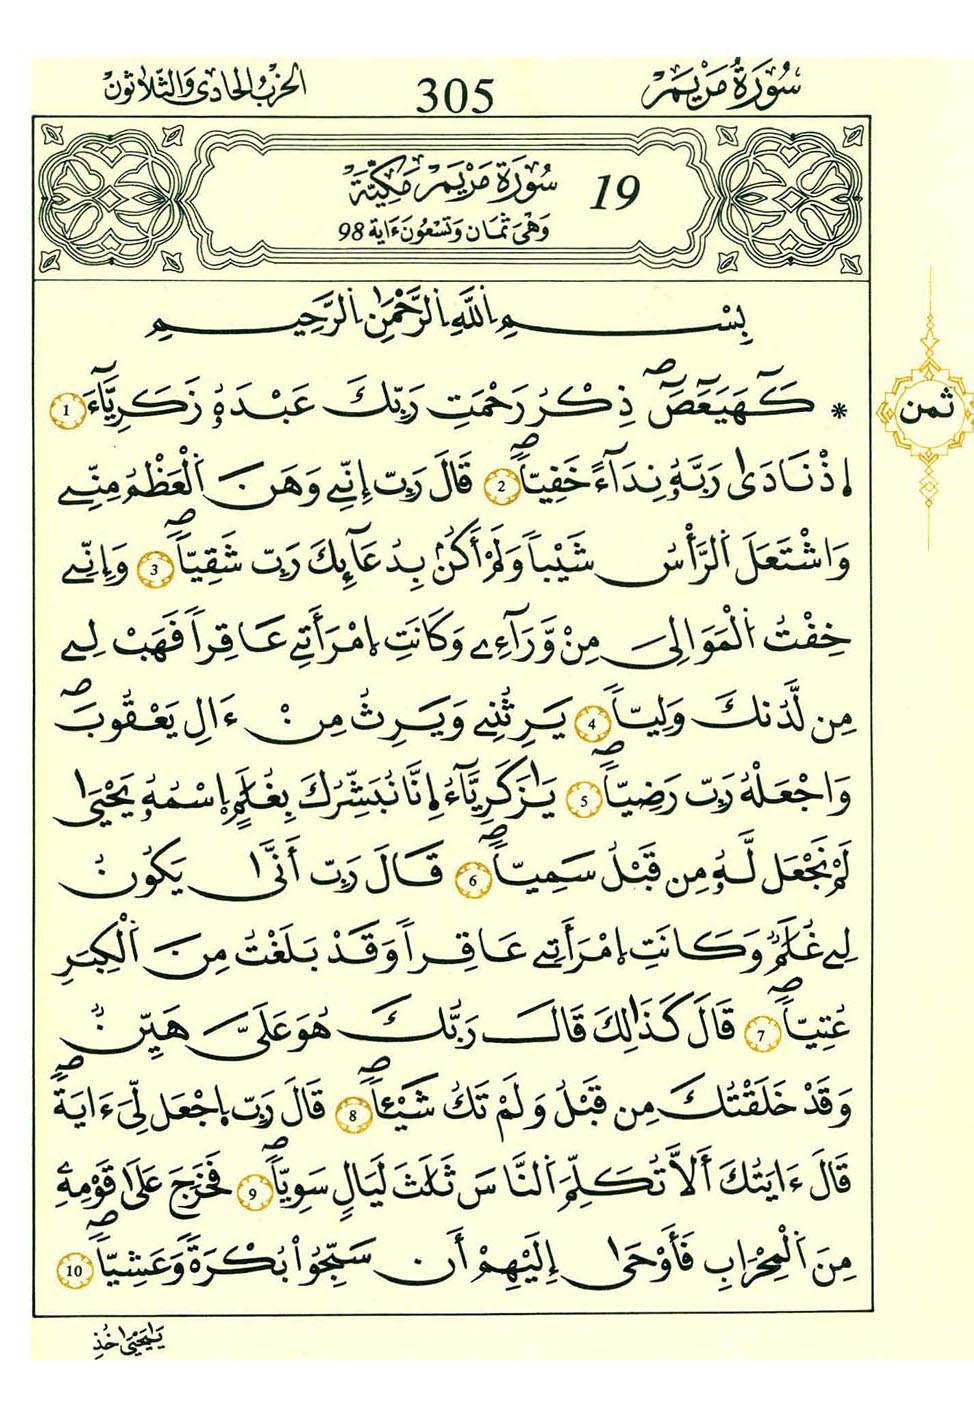 سُورَةُ مَرْيَمَ 305 الحزب الحادي والثلاثون
19 سُورَةُ مَرْيَمَ مَكِّيَّة
وَهْيَ ثَمَان وَتِسْعُونَ ءَايَة 98
بِسْمِ اِللَّهِ اِلرَّحْمَٰنِ اِلرَّحِيمِ
* كَٓهَيَعَٓصَٓ ذِكْرُ رَحْمَتِ رَبِّكَ عَبْدَهُۥ زَكَرِيَّآءَ 1
ثمن
إِذْ نَادَىٰ رَبَّهُۥ نِدَآءً خَفِيّاً 2 قَالَ رَبِّ إِنِّے وَهَنَ اَلْعَظْمُ مِنِّے
وَاشْتَعَلَ اَلرَّأْسُ شَيْباً وَلَمْ أَكُنۢ بِدُعَآئِكَ رَبِّ شَقِيّاً 3 وَإِنِّے
خِفْتُ اُلْمَوَالِيَ مِنْ وَّرَآءِے وَكَانَتِ اِمْرَأَتِے عَاقِراً فَهَبْ لِے
مِن لَّدُنكَ وَلِيّاً 4 يَرِثُنِے وَيَرِثُ مِنْ ءَالِ يَعْقُوبَ
وَاجْعَلْهُ رَبِّ رَضِيّاً 5 يَٰزَكَرِيَّآءُ اِنَّا نُبَشِّرُكَ بِغُلَٰمٍ اِسْمُهُۥ يَحْيَىٰ
لَمْ نَجْعَل لَّهُۥ مِن قَبْلُ سَمِيّاً 6 قَالَ رَبِّ أَنَّىٰ يَكُونُ
لِے غُلَٰمٌ وَكَانَتِ اِمْرَأَتِے عَاقِراً وَقَدْ بَلَغْتُ مِنَ اَلْكِبَرِ
عُتِيّاً 7 قَالَ كَذَٰلِكَ قَالَ رَبُّكَ هُوَ عَلَيَّ هَيِّنٌ
وَقَدْ خَلَقْتُكَ مِن قَبْلُ وَلَمْ تَكُ شَيْـٔاً 8 قَالَ رَبِّ اِجْعَل لِّيَ ءَايَةً
قَالَ ءَايَتُكَ أَلَّا تُكَلِّمَ اَلنَّاسَ ثَلَٰثَ لَيَالٍ سَوِيّاً 9 فَخَرَجَ عَلَىٰ قَوْمِهِۦ
مِنَ اَلْمِحْرَابِ فَأَوْحَىٰ إِلَيْهِمْ أَن سَبِّحُواْ بُكْرَةً وَعَشِيّاً 10
يَٰيَحْيَىٰ خُذِ